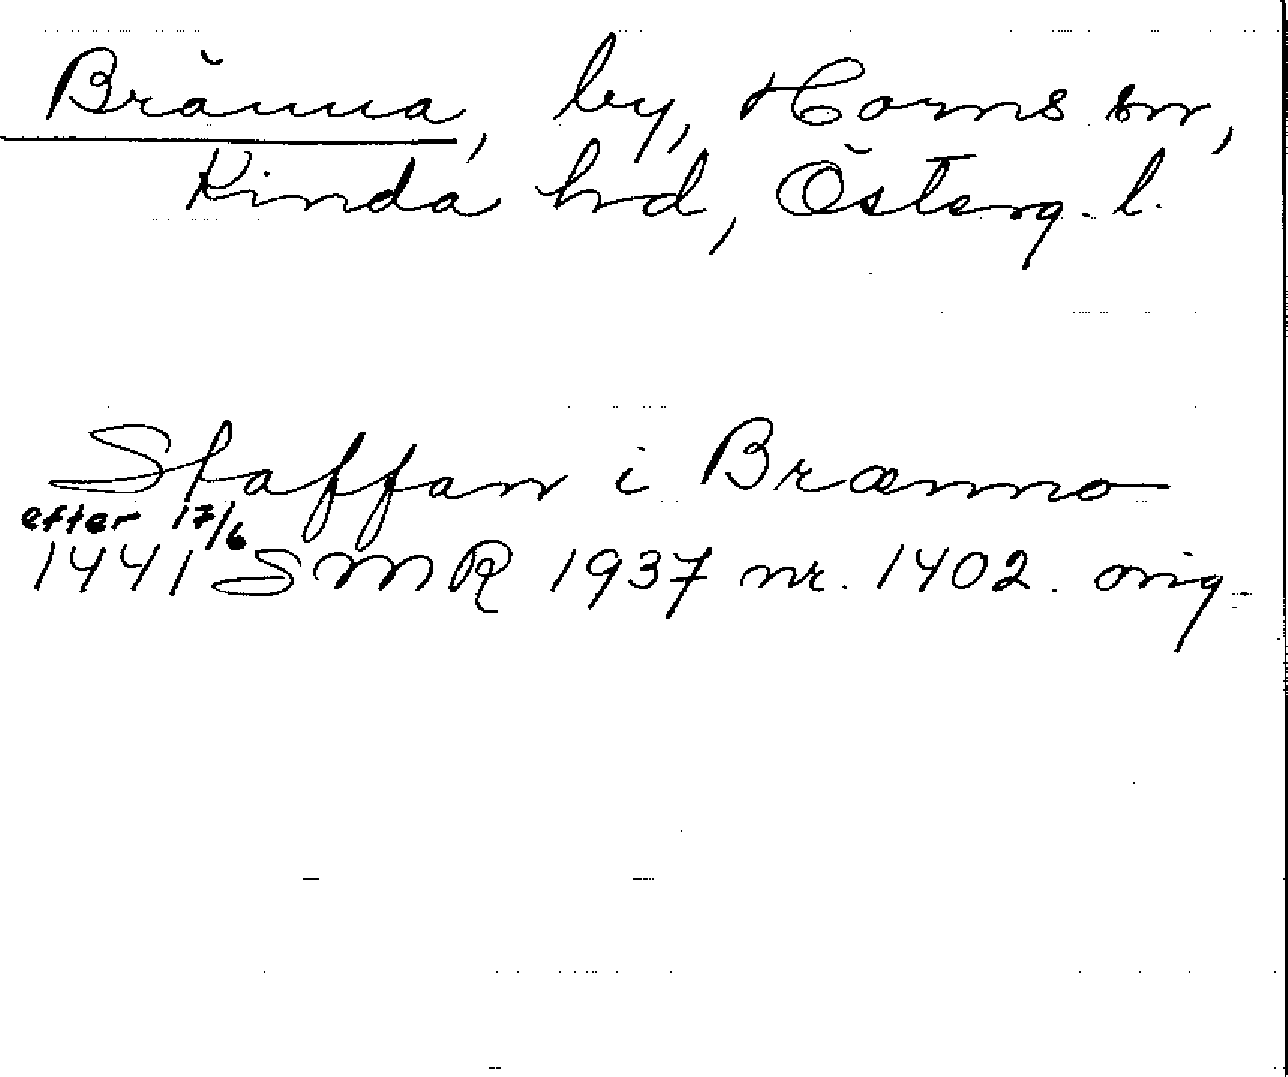 Bränna, by, Horns sn,
Kinda hd, Österg. l.
Staffan i Brænno
efter 17/6
1441 SMR 1937 nr. 1402. orig.